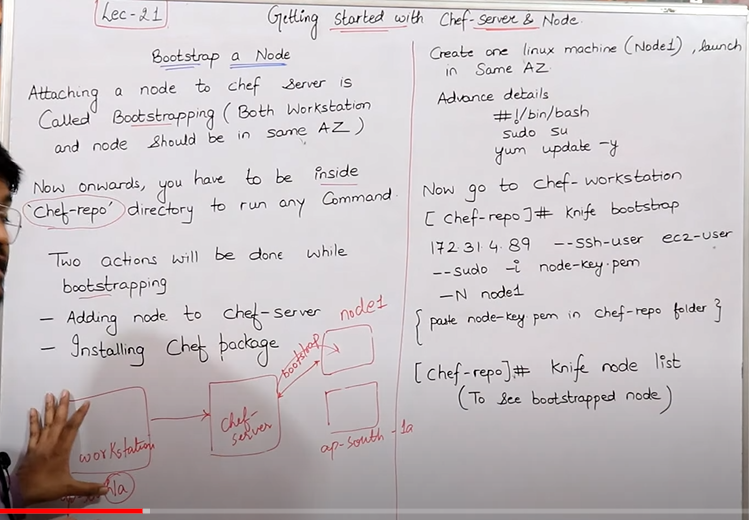 Lec-21
Getting started with Chef-server & Node.
Bootstrap a Node
Attaching a node to chef server is
Called Bootstrapping (Both Workstation
and node should be in same AZ)
Now onwards, you have to be inside
'Chef-repo' directory to run any Command.
Two actions will be done while
bootstrapping
- Adding node to Chef-server
- Installing Chef package
node1
bootstrap
workstation
chef-
server
ap-south-1a
1a
Create one linux machine (Node1), launch
in Same AZ.
Advance details
#!/bin/bash
sudo su
yum update -y
Now go to chef-workstation
[chef-repo]# knife bootstrap
172.31.4.89 --ssh-user ec2-user
--sudo -i node-key.pem
-N node1
{ paste node-key.pem in chef-repo folder }
[chef-repo]# knife node list
(To see bootstrapped node)